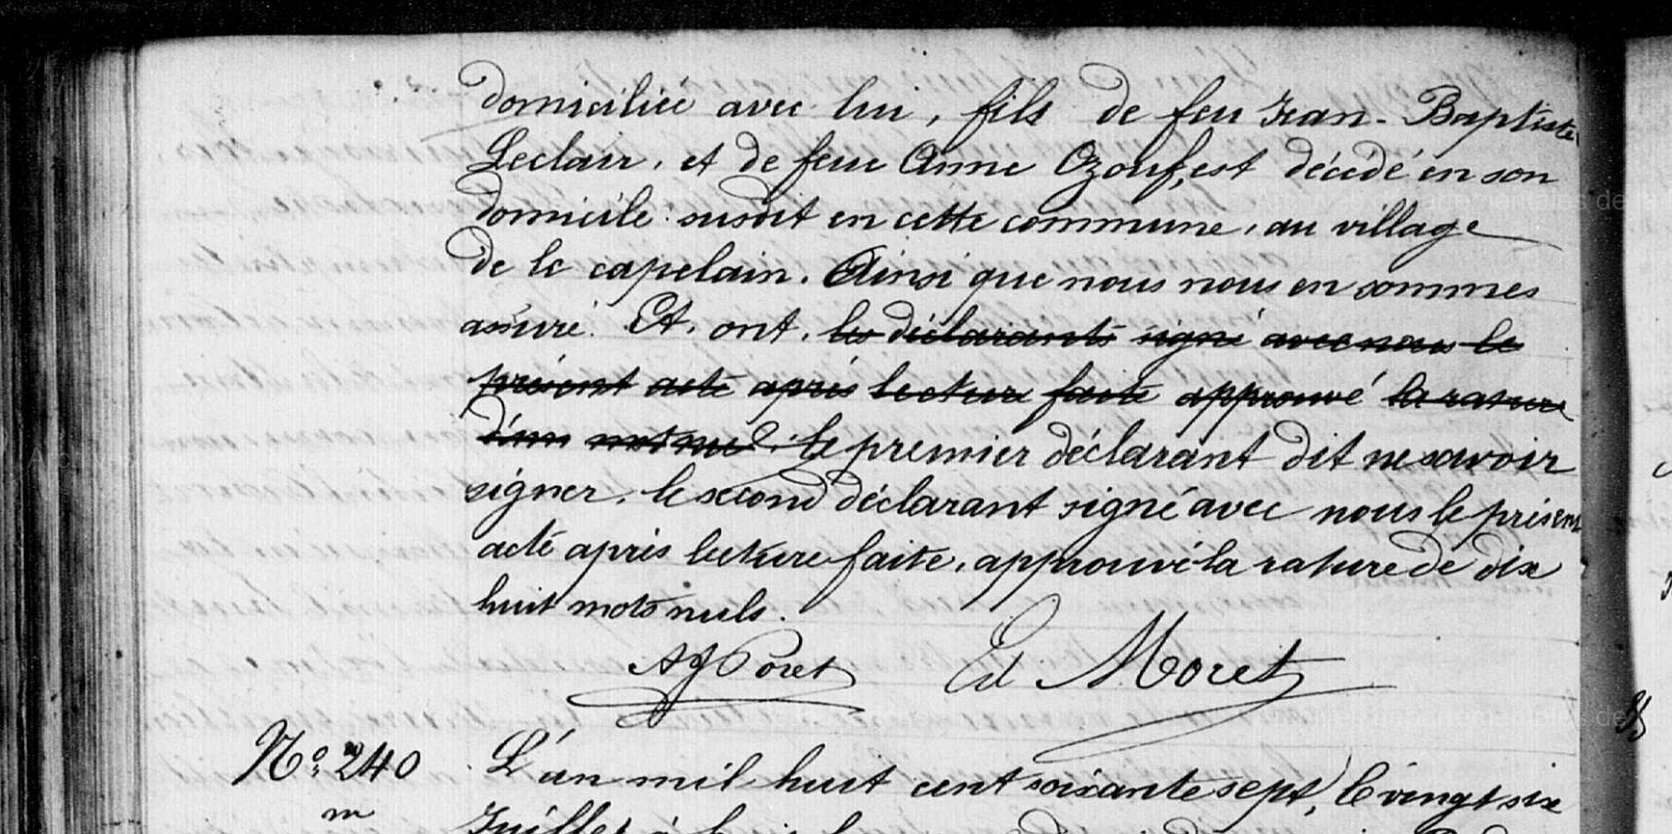 domiciliée avec lui, fils de feu Jean-Baptiste
Leclair, et de feue Anne Ozouf, est décédé en son
domicile susdit en cette commune, au village
de le capelain. Ainsi que nous nous en sommes
assuré. Et, ont, les déclarants signé avec nous le
présent acte après lecture faite approuvé la rature
d'un mot nul. le premier déclarant dit ne savoir
signer, le second déclarant signé avec nous le présent
acte après lecture faite, approuvé la rature de dix
huit mots nuls.
AJ Poret Ed Moret
No. 240 L'an mil huit cent soixante sept, le vingt six
Juillet à